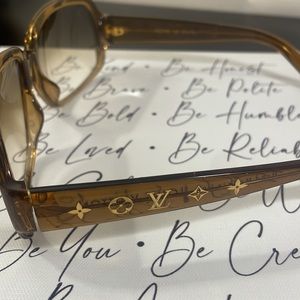 Be Kind • Be Honest
Be Brave • Be Polite
Be Bold • Be Humble
Be Loved • Be Reliable
LV
Be You • Be Crea